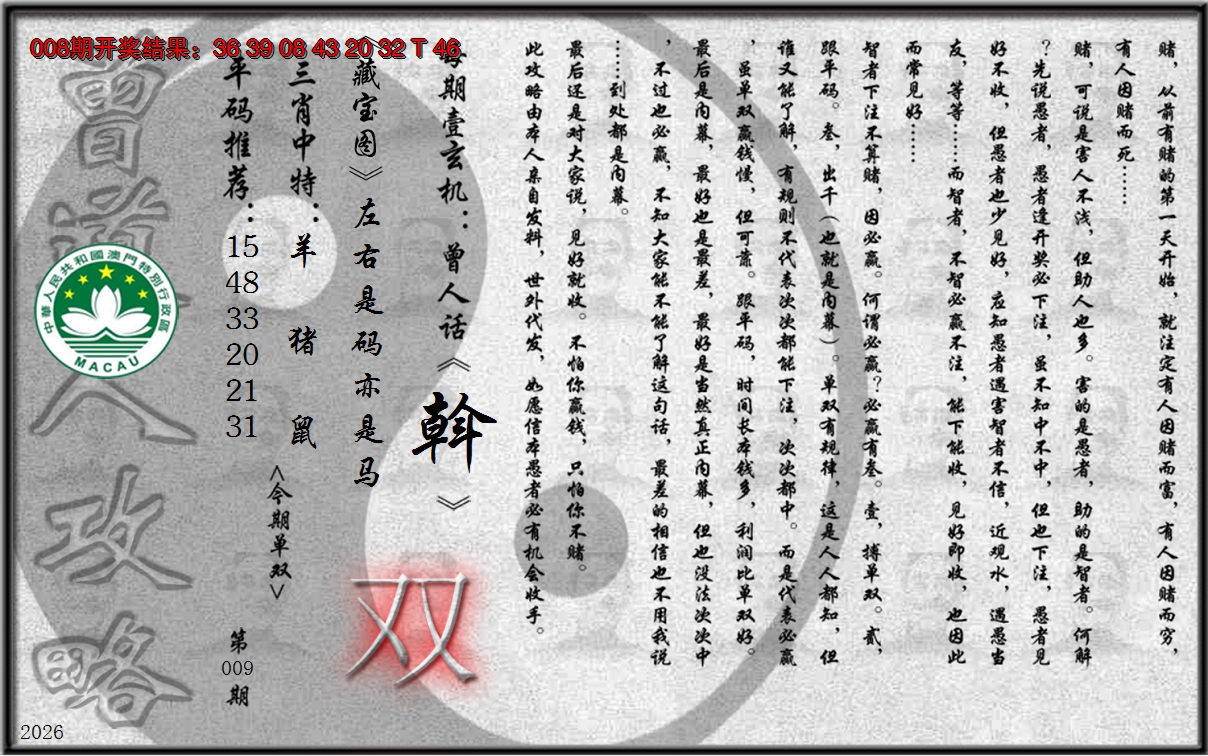 008期开奖结果：36 39 08 43 20 32 T 46
赌，从前有赌的第一天开始，就注定有人因赌而富，有人因赌而穷，
有人因赌而死……
赌，可说是害人不浅，但助人也多。害的是愚者，助的是智者。何解
？先说愚者，愚者逢开奖必下注，虽不知中不中，但也下注，愚者见
好不收，但愚者也少见好，应知愚者遇害智者不信，近观水，遇愚当
友，等等……而智者，不智必赢不注，能下能收，见好即收，也因此
而常见好……
智者下注不算赌，因必赢。何谓必赢？必赢有叁。壹，搏单双。贰，
跟平码。叁，出千（也就是内幕）。单双有规律，这是人人都知，但
谁又能了解，有规则不代表次次都能下注，次次都中。而是代表必赢
，虽单双赢钱慢，但可靠。跟平码，时间长本钱多，利润比单双好。
最后是内幕，最好也是最差，最好是当然真正内幕，但也没法次次中
，不过也必赢，不知大家能不能了解这句话，最差的相信也不用我说
……到处都是内幕。
最后还是对大家说，见好就收。不怕你赢钱，只怕你不赌。
此攻略由本人亲自发料，世外代发，如愿信本愚者必有机会收手。
每期壹玄机：曾人话《斡》
《藏宝图》左右是码亦是马
双
三肖中特：羊 猪 鼠
<今期单双>
平码推荐：
15
48
33
20
21
31
第
009
期
曾道人攻略
中華人民共和國澳門特別行政區
MACAU
2026